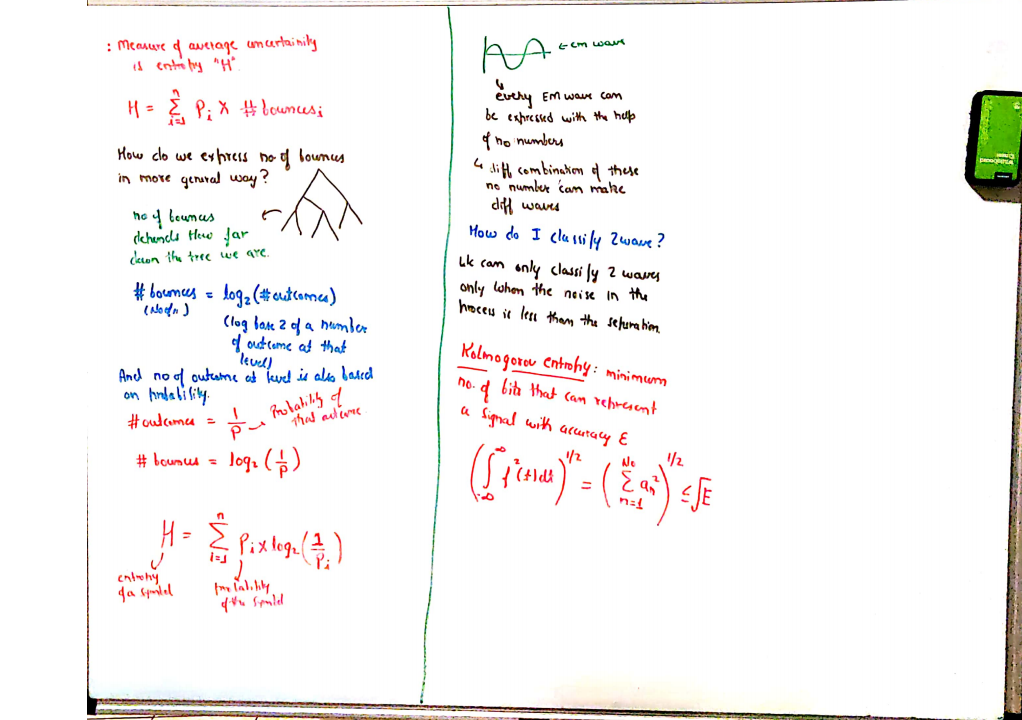 : Measure of average uncertainity
is entropy "H"
H = n Σ i=1 Pi × # bouncesi
How do we express no of bounces
in more general way?
no of bounces
depends How far
down the tree we are.
# bounces = log2 (# outcomes)
(No of n)
(log base 2 of a number
of outcome at that
level)
And no of outcome at level is also based
on probability.
# outcomes = 1/P Probability of
that outcome
# bounces = log2 (1/P)
H = n Σ i=1 Pi × log2 (1/Pi)
entropy
of a symbol
probability
of the symbol
← EM wave
every EM wave can
be expressed with the help
of no numbers
↳ diff combination of these
no number can make
diff waves
How do I classify 2 wave?
We can only classify 2 waves
only when the noise in the
process is less than the sepuration.
Kolmogorov entropy: minimum
no. of bits that can represent
a signal with accuracy E
(∫ -∞ ∞ f²(t)dt)^1/2 = (No Σ n=1 an²)^1/2 ≤ √E
Whiteboard